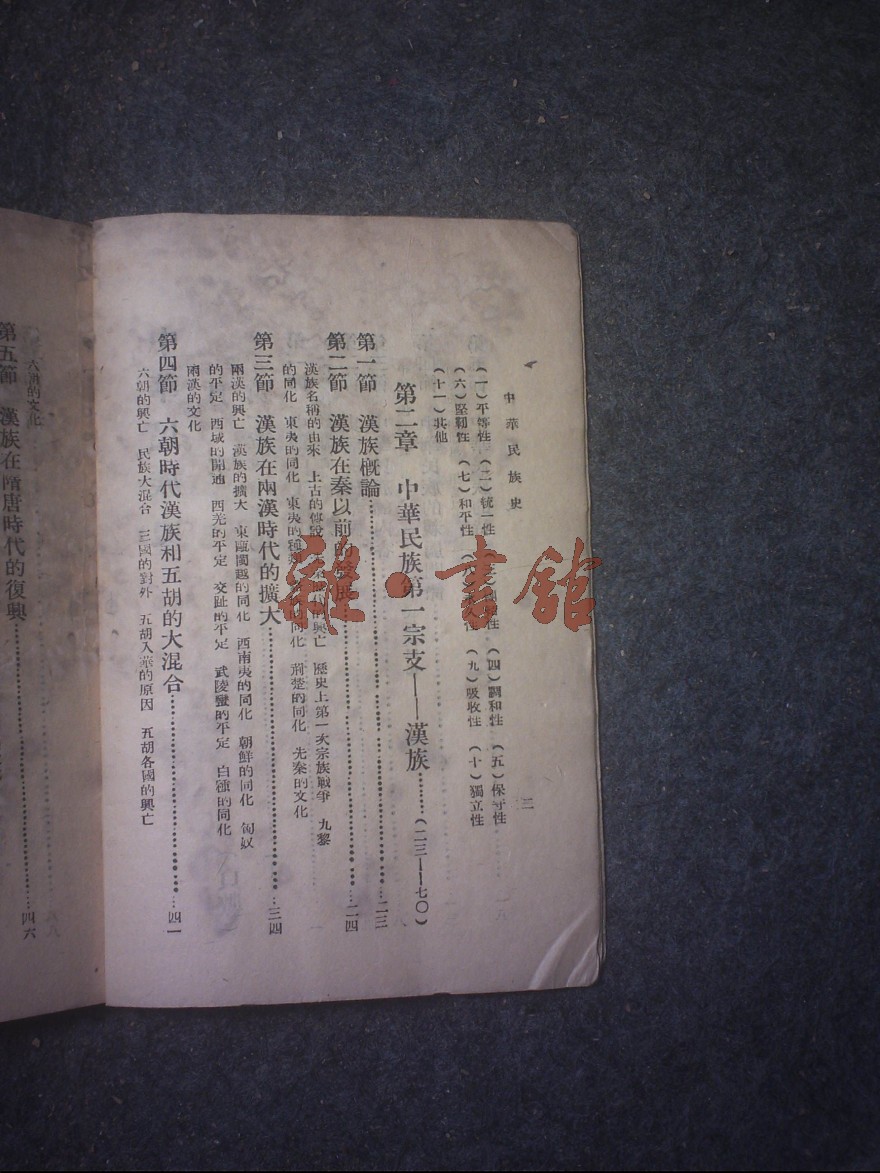 中華民族史
二
（一）平等性　（二）統一性　　性　（四）調和性　（五）保守性
（六）堅韌性　（七）和平性　　性　（九）吸收性　（十）獨立性
（十一）其他
第二章　中華民族第一宗支——漢族………（二三——七〇）
第一節　漢族槪論………二三
第二節　漢族在秦以前的發展………二四
漢族名稱的由來　上古的傳說　的興亡　歷史上第一次宗族戰爭　九黎
的同化　東夷的同化　東夷的種類　的同化　荊楚的同化　先秦的文化
第三節　漢族在兩漢時代的擴大………三四
兩漢的興亡　漢族的擴大　東甌閩越的同化　西南夷的同化　朝鮮的同化　匈奴
的平定　西域的開通　西羌的平定　交趾的平定　武陵蠻的平定　白種的同化
兩漢的文化
第四節　六朝時代漢族和五胡的大混合………四一
六朝的興亡　民族大混合　三國的對外　五胡入華的原因　五胡各國的興亡
六朝的文化
第五節　漢族在隋唐時代的復興………四六
雜·書館